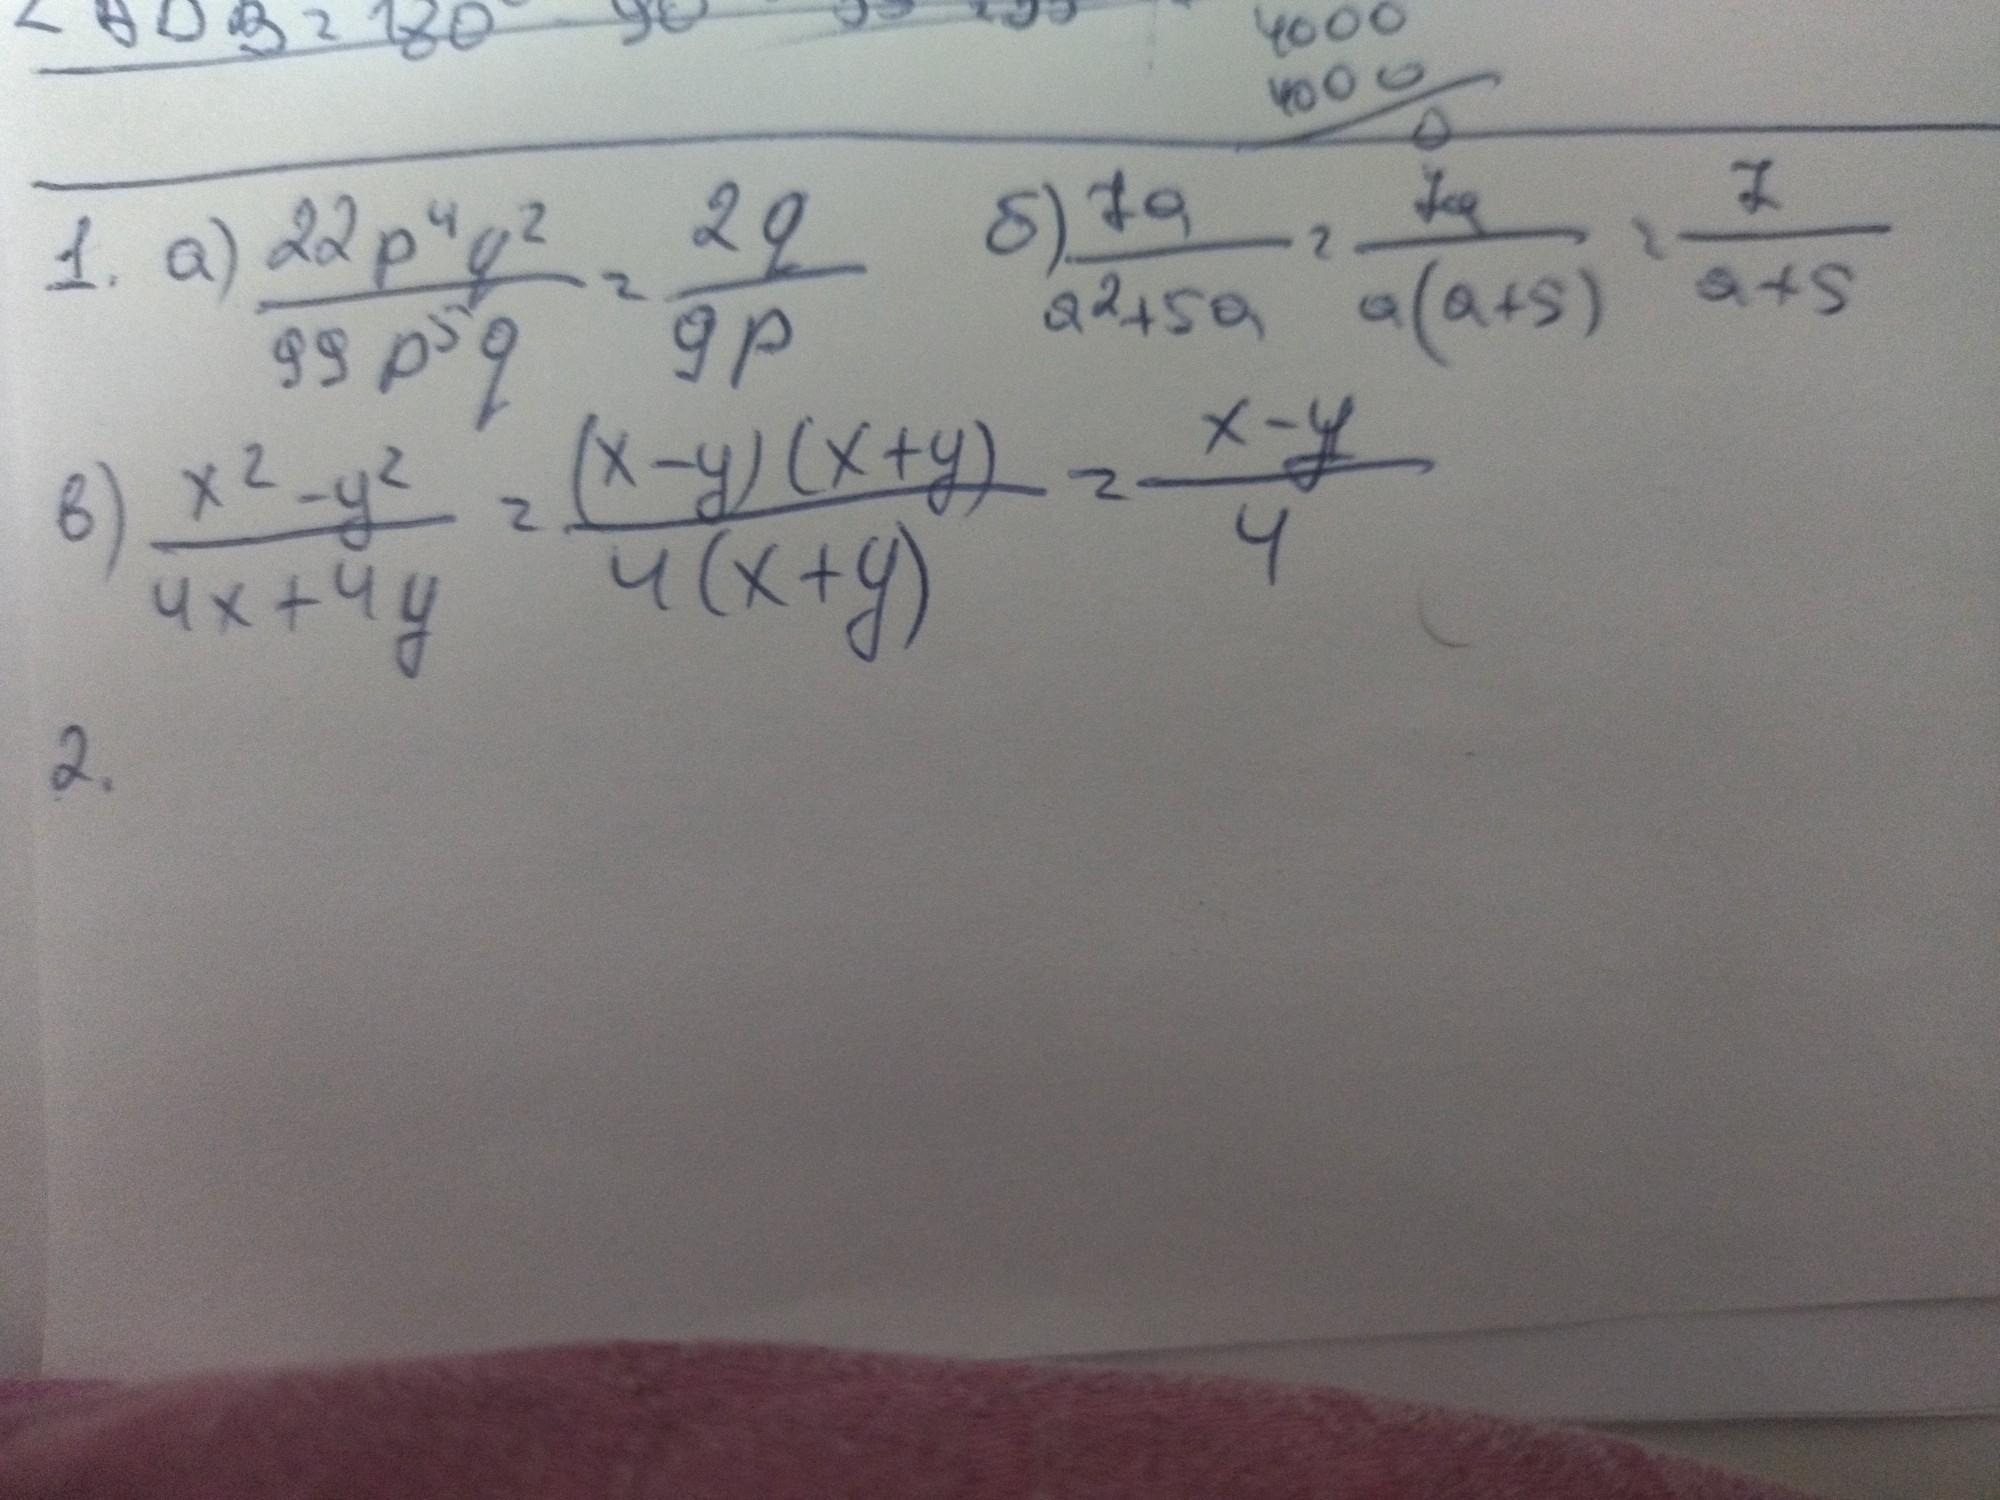 ∠ADB = 180° - 90°
4000
4000
0
1. а) 22p⁴q²/99p⁵q = 2q/9p б) 7a/a²+5a = 7a/a(a+5) = 7/a+5
в) x²-y²/4x+4y = (x-y)(x+y)/4(x+y) = x-y/4
2.